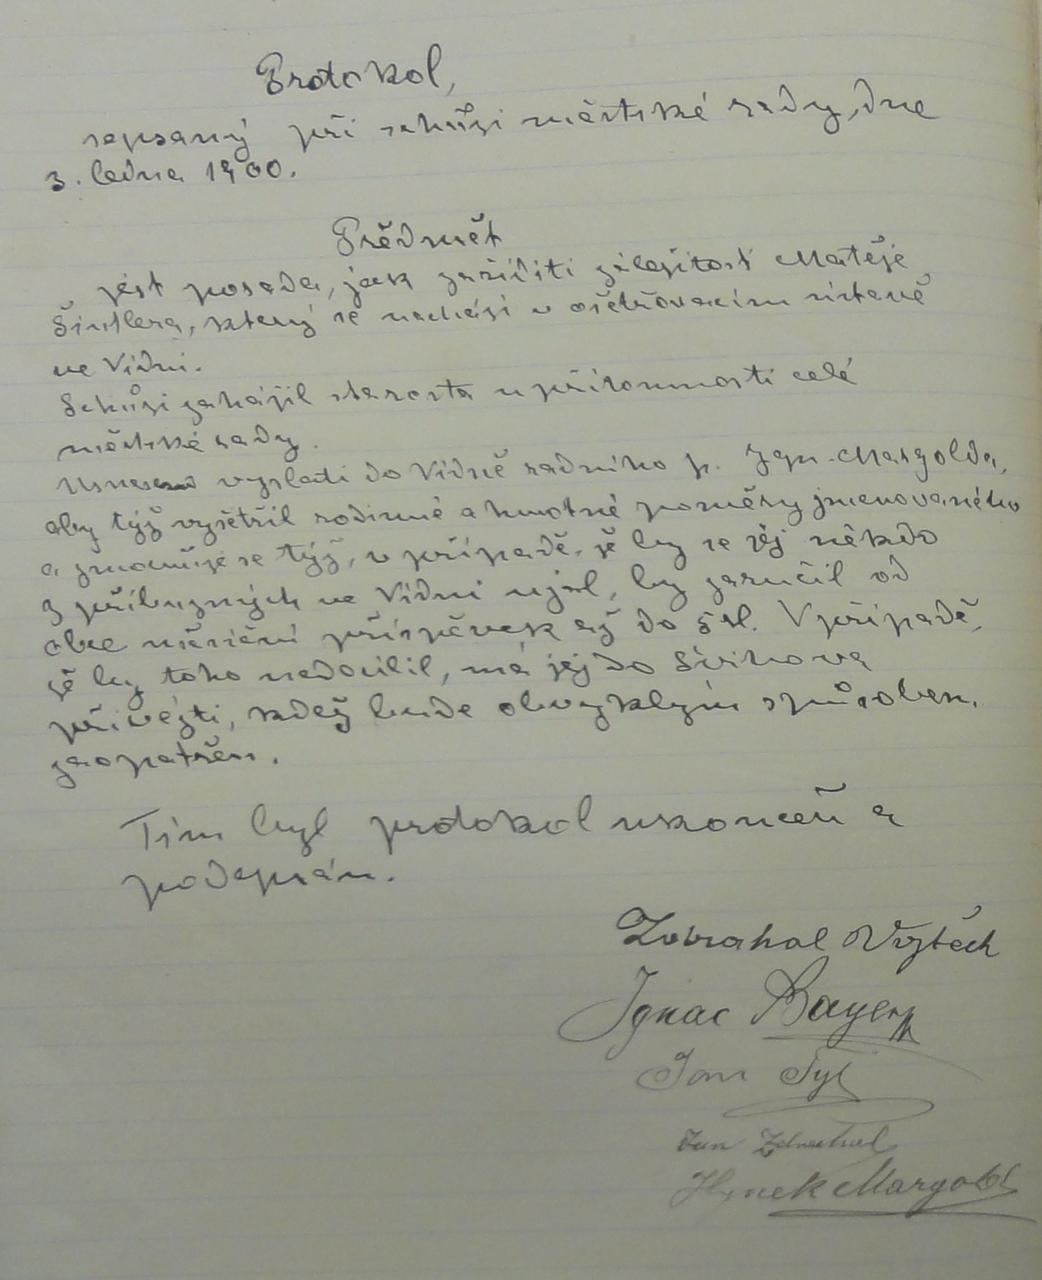 Protokol,
sepsaný při schůzi městské rady, dne
3. ledna 1900.
Předmět
jest porada, jak zaříditi záležitost Matěje
Šintlera, který se nachází v ošetřovacím ústavě
ve Vídni.
Schůzi zahájil starosta u přítomnosti celé
městské rady.
Usneseno vyslati do Vídně radního p. Ign. Margolda,
aby týž vyšetřil rodinné a hmotné poměry jmenovaného
a zmocňuje se týž, v případě, že by se jej někdo
z příbuzných ve Vídni ujal, by zaručil od
obce měsíční příspěvek až do 5 zl. V případě,
že by toho nedocílil, má jej do Švihova
přivézti, kdež bude obvyklým způsobem
zaopatřen.
Tím byl protokol ukončen a
podepsán.
Zdrahal Vojtěch
Ignac Bayer
Jan Tyl
Jan Zdrahal
Hynek Margold